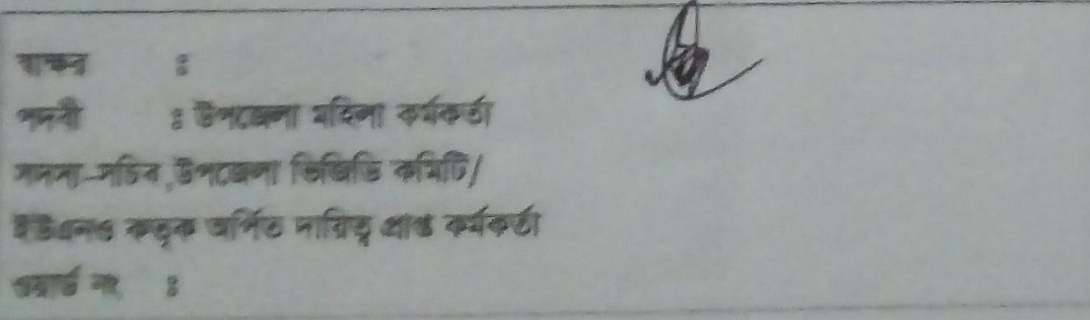 স্বাক্ষর :
পদবী : উপজেলা মহিলা কর্মকর্তা
সদস্য-সচিব, উপজেলা ভিজিডি কমিটি/
ইউএনও কর্তৃক অর্পিত দায়িত্ব প্রাপ্ত কর্মকর্তা
ওয়ার্ড নং :